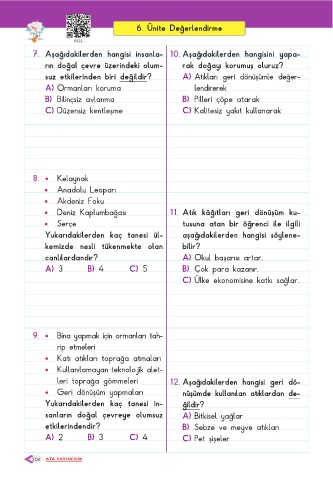 6. Ünite Değerlendirme
7. Aşağıdakilerden hangisi insanla-
rın doğal çevre üzerindeki olum-
suz etkilerinden biri değildir?
A) Ormanları koruma
B) Bilinçsiz avlanma
C) Düzensiz kentleşme
8. • Kelaynak
• Anadolu Leoparı
• Akdeniz Foku
• Deniz Kaplumbağası
• Serçe
Yukarıdakilerden kaç tanesi ül-
kemizde nesli tükenmekte olan
canlılardandır?
A) 3 B) 4 C) 5
9. • Bina yapmak için ormanları tah-
rip etmeleri
• Katı atıkları toprağa atmaları
• Kullanılamayan teknolojik alet-
leri toprağa gömmeleri
• Geri dönüşüm yapmaları
Yukarıdakilerden kaç tanesi in-
sanların doğal çevreye olumsuz
etkilerindendir?
A) 2 B) 3 C) 4
10. Aşağıdakilerden hangisini yapa-
rak doğayı korumuş oluruz?
A) Atıkları geri dönüşümle değer-
lendirerek
B) Pilleri çöpe atarak
C) Kalitesiz yakıt kullanarak
11. Atık kâğıtları geri dönüşüm ku-
tusuna atan bir öğrenci ile ilgili
aşağıdakilerden hangisi söylene-
bilir?
A) Okul başarısı artar.
B) Çok para kazanır.
C) Ülke ekonomisine katkı sağlar.
12. Aşağıdakilerden hangisi geri dö-
nüşümde kullanılan atıklardan de-
ğildir?
A) Bitkisel yağlar
B) Sebze ve meyve atıkları
C) Pet şişeler
ATA YAYINCILIK